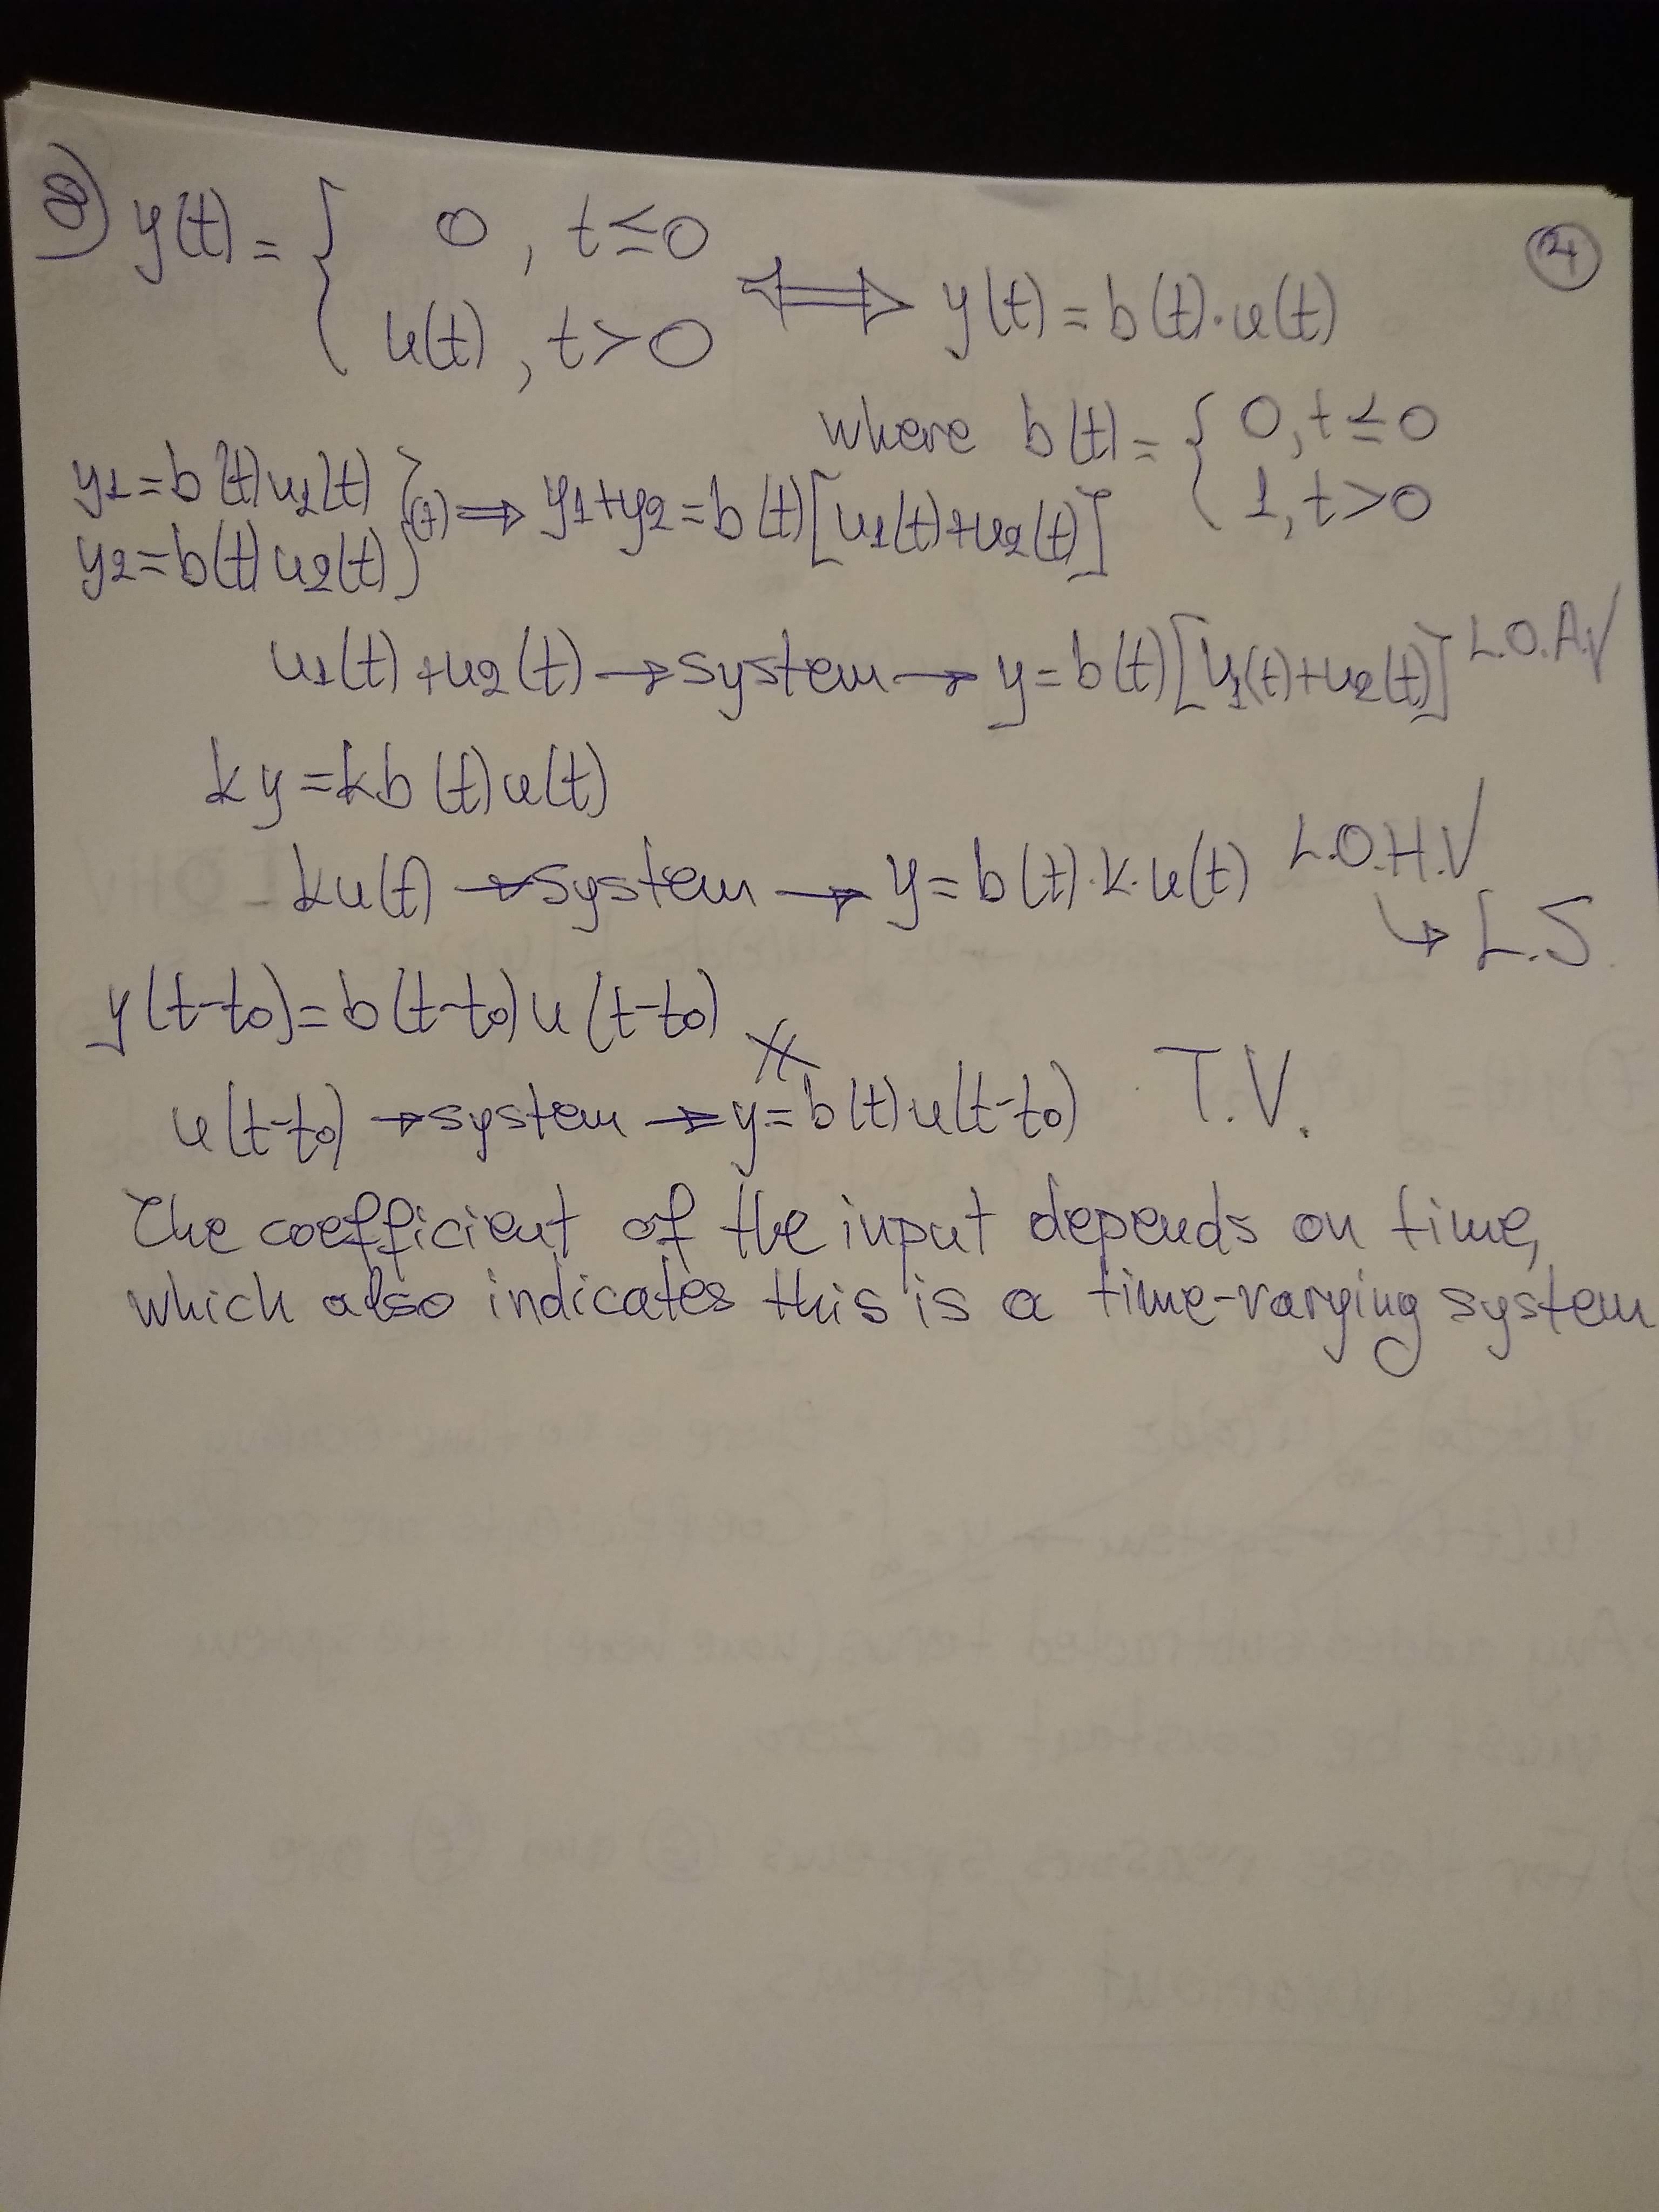 8) y(t) = { 0 , t ≤ 0
u(t) , t > 0 ⟺ y(t) = b(t)·u(t)
where b(t) = { 0, t ≤ 0
1, t > 0
y1 = b(t)u1(t)
y2 = b(t)u2(t) } (+) ⟹ y1+y2 = b(t)[u1(t)+u2(t)]
u1(t)+u2(t) → system → y = b(t)[u1(t)+u2(t)] L.O.A.✓
ky = kb(t)u(t)
ku(t) → system → y = b(t)·k·u(t) L.O.H.✓
↳ L.S.
y(t-t0) = b(t-t0)u(t-t0)
u(t-t0) → system → y = b(t)u(t-t0) T.V.
The coefficient of the input depends on time,
which also indicates this is a time-varying system